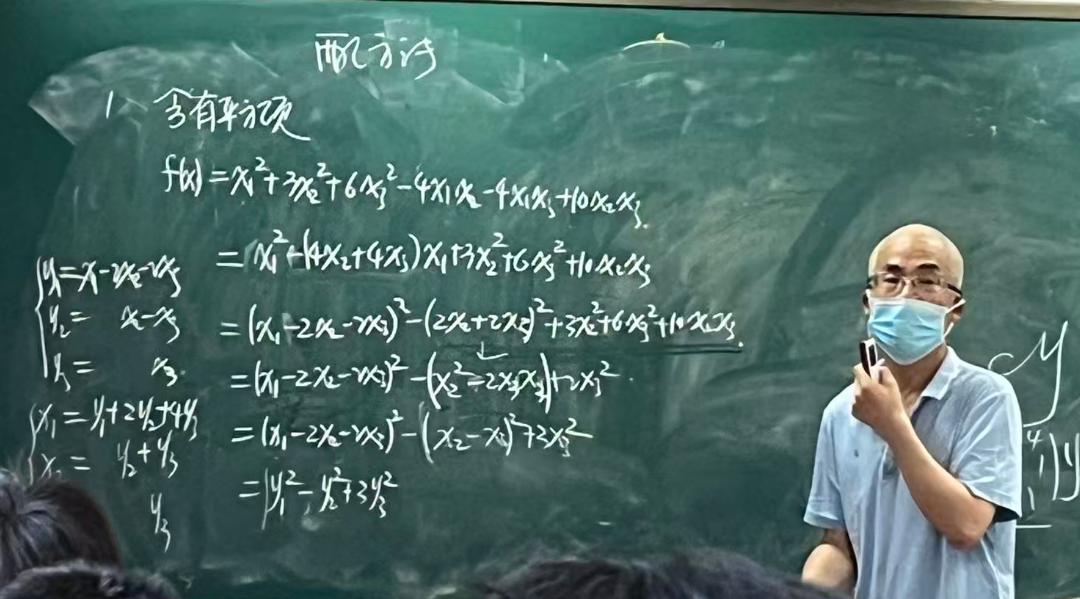 配方法
1. 含有平方项
f(x)=x₁²+3x₂²+6x₃²-4x₁x₂-4x₁x₃+10x₂x₃.
=x₁²-(4x₂+4x₃)x₁+3x₂²+6x₃²+10x₂x₃
=(x₁-2x₂-2x₃)²-(2x₂+2x₃)²+3x₂²+6x₃²+10x₂x₃.
=(x₁-2x₂-2x₃)²-(x₂²-2x₂x₃)+2x₃².
=(x₁-2x₂-2x₃)²-(x₂-x₃)²+3x₃²
=y₁²-y₂²+3y₃²
{y₁=x₁-2x₂-2x₃
y₂= x₂-x₃
y₃= x₃.
{x₁=y₁+2y₂+4y₃
x₂= y₂+y₃
y₃
y
4
1)y
1